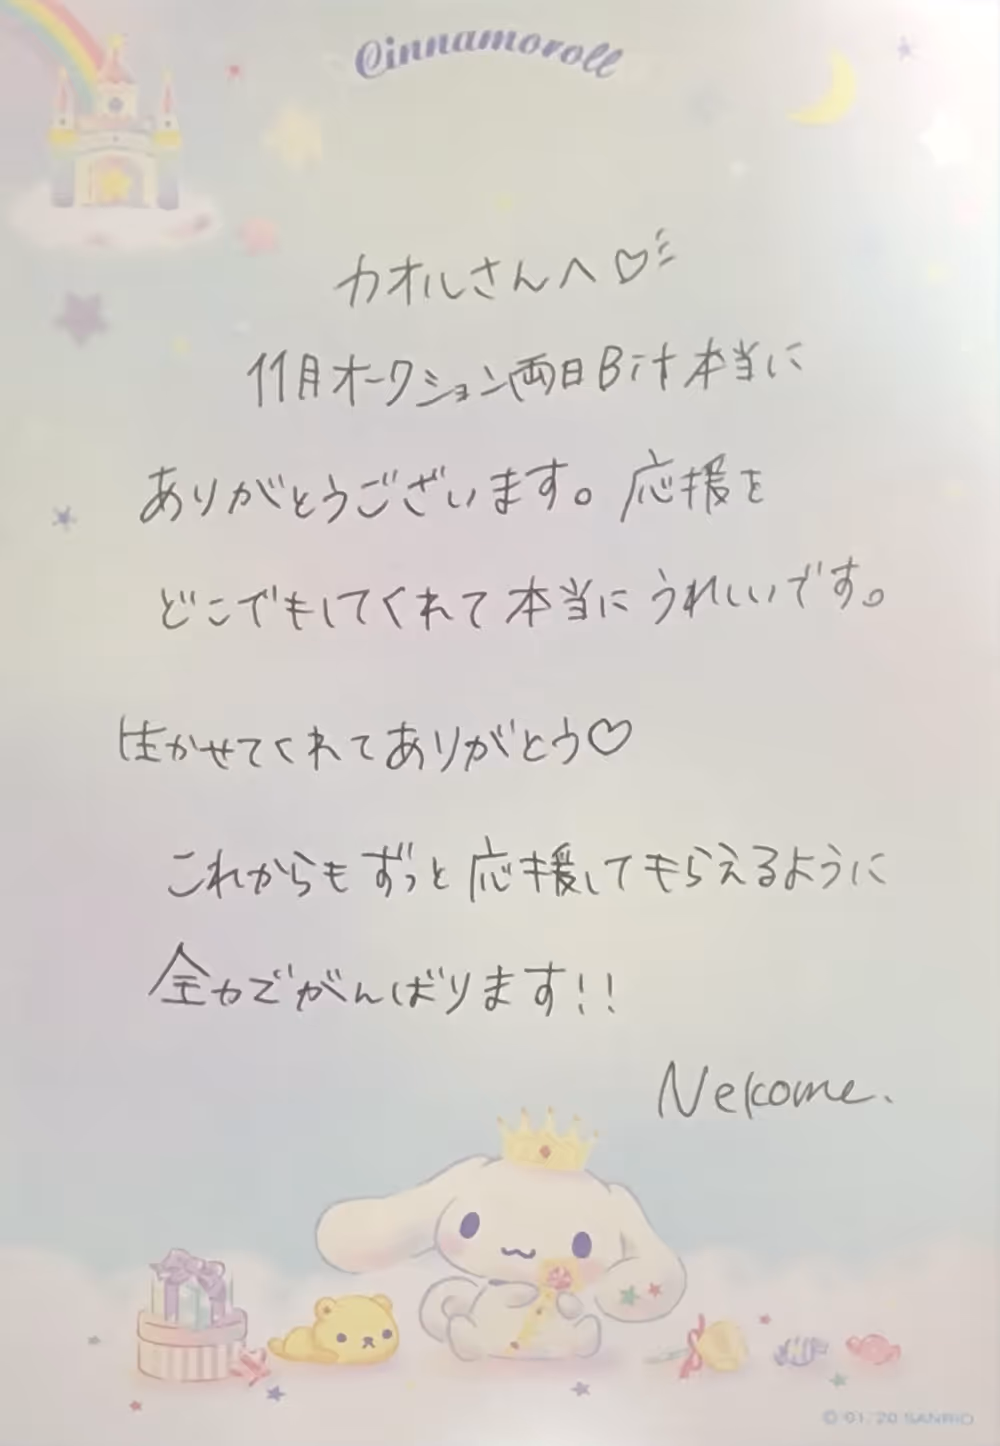 Cinnamoroll
カオルさんへ♡
11月オークション両日Bit本当に
ありがとうございます。応援を
どこでもしてくれて本当にうれしいです。
生かせてくれてありがとう♡
これからもずっと応援してもらえるように
全力でがんばります!!
Nekome.
© '01, '20 SANRIO